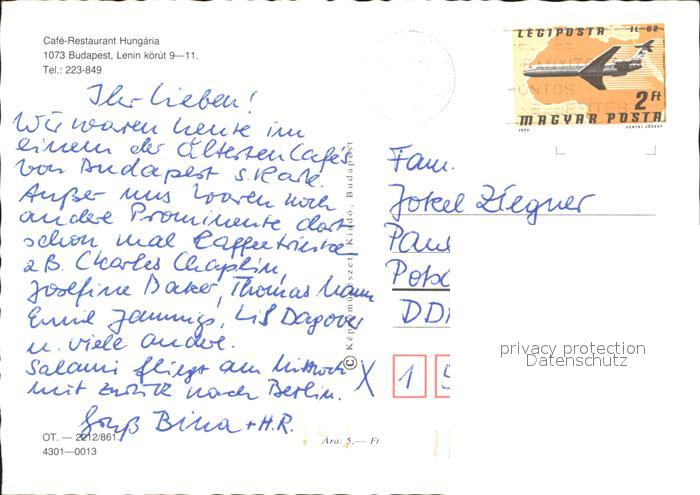 Café-Restaurant Hungária
1073 Budapest, Lenin körút 9—11.
Tel.: 223-849
Ihr Lieben!
Wir waren heute in
einem der ältesten Cafés
von Budapest s. Karte.
Außer uns waren noch
andere Prominente dort
schon mal Kaffeetrinken
z.B. Charles Chaplin,
Josefine Baker, Thomas Mann
Emil Jannings, Lil Dagover
u. viele andere.
Salami fliegt am Mittwoch
mit zurück nach Berlin.
Gruß Bina + H.R.
OT. — 2212/861
4301—0013
Ára: 5,— Ft
© Képzőművészeti Kiadó, Budapest
LÉGIPOSTA IL-62
2 Ft
MAGYAR POSTA
1977. VERTEL JÓZSEF
Fam.
Jokel Ziegner
Pau
Pots
DD
X 1 5
privacy protection
Datenschutz